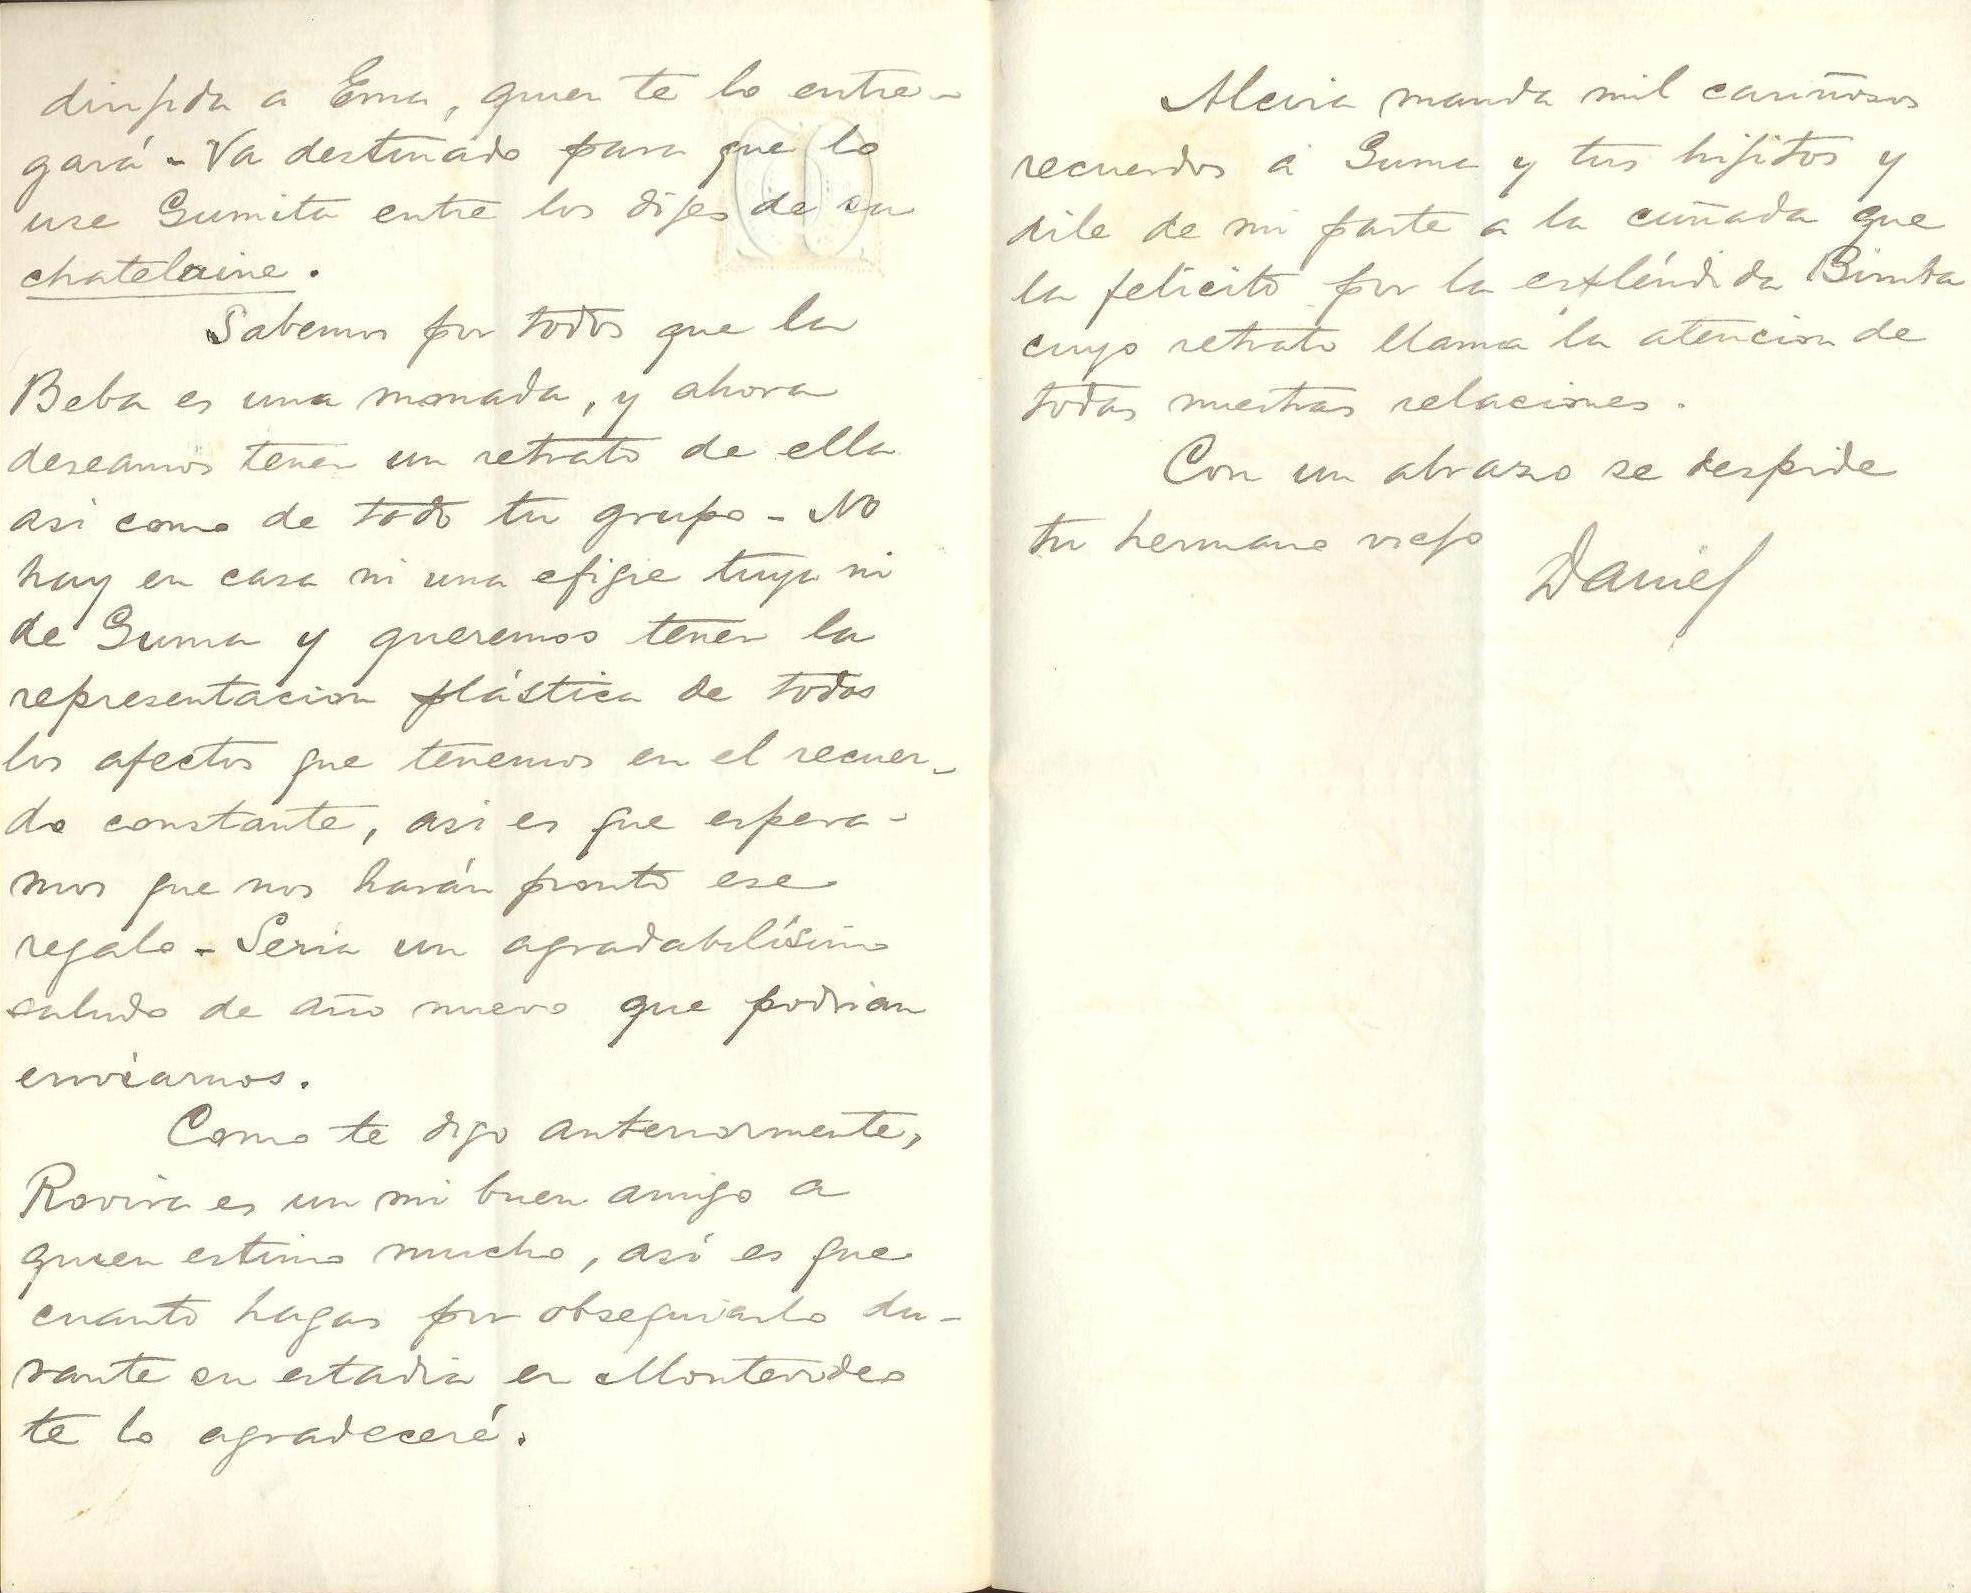 dirijida a Ema, quien te lo entre-
gará - Va destinado para que lo
use Gumita entre los dijes de su
chatelaine.
Sabemos por todos que la
Beba es una monada, y ahora
deseamos tener un retrato de ella
asi como de todo tu grupo - No
hay en casa ni una efigie tuya ni
de Guma y queremos tener la
representacion plástica de todos
los afectos que tenemos en el recuer-
do constante, asi es que espera-
mos que nos harán pronto ese
regalo - Seria un agradabilísimo
saludo de año nuevo que podrian
enviarnos.
Como te digo anteriormente,
Rovira es un mi buen amigo a
quien estimo mucho, así es que
cuanto hagas por obsequiarlo du-
rante su estadia en Montevideo
te lo agradeceré.
Alcira manda mil cariñosos
recuerdos á Guma y tus hijitos y
dile de mi parte a la cuñada que
la felicito por la expléndida Bimba
cuyo retrato llama la atencion de
todas nuestras relaciones.
Con un abrazo se despide
tu hermano viejo
Daniel